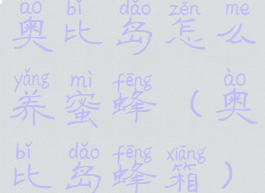 ào bǐ dǎo zěn me
奥比岛怎么
yǎng mì fēng ào
养蜜蜂（奥
bǐ dǎo fēng xiāng
比岛蜂箱）